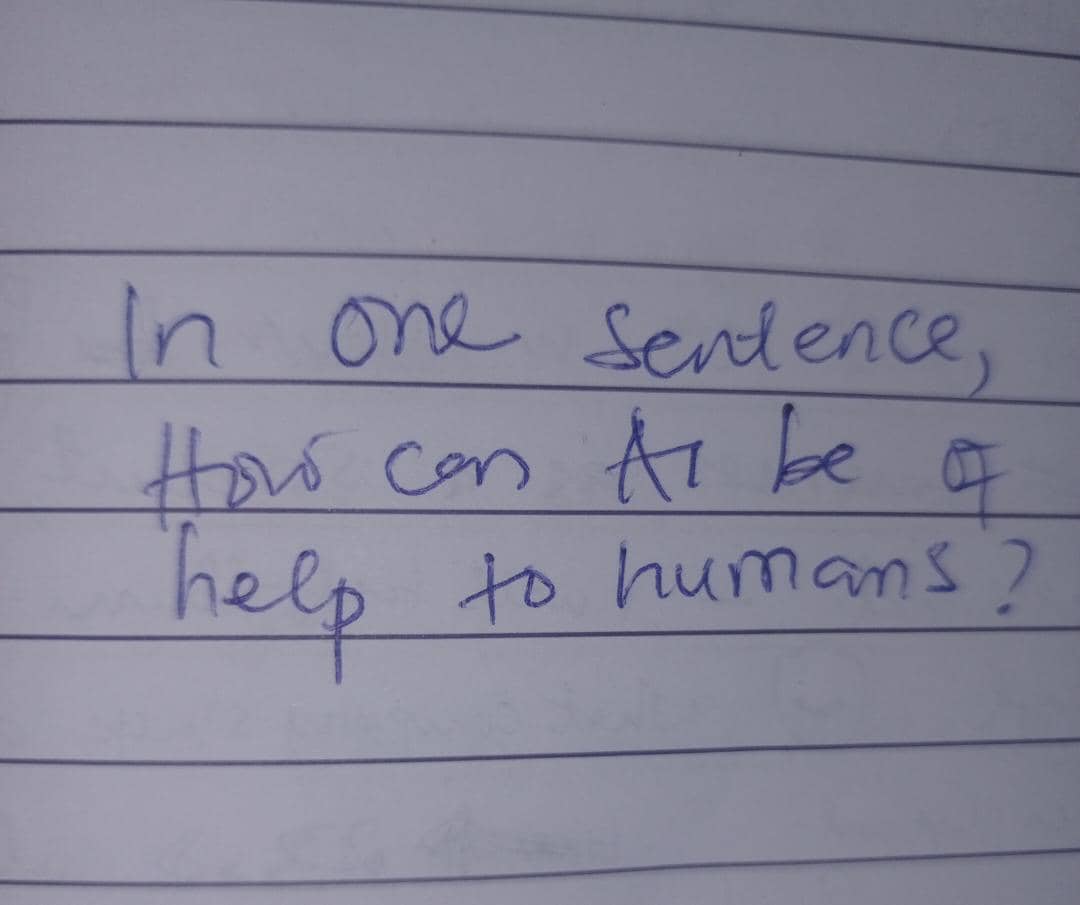 In one sentence,
How can AI be of
help to humans?